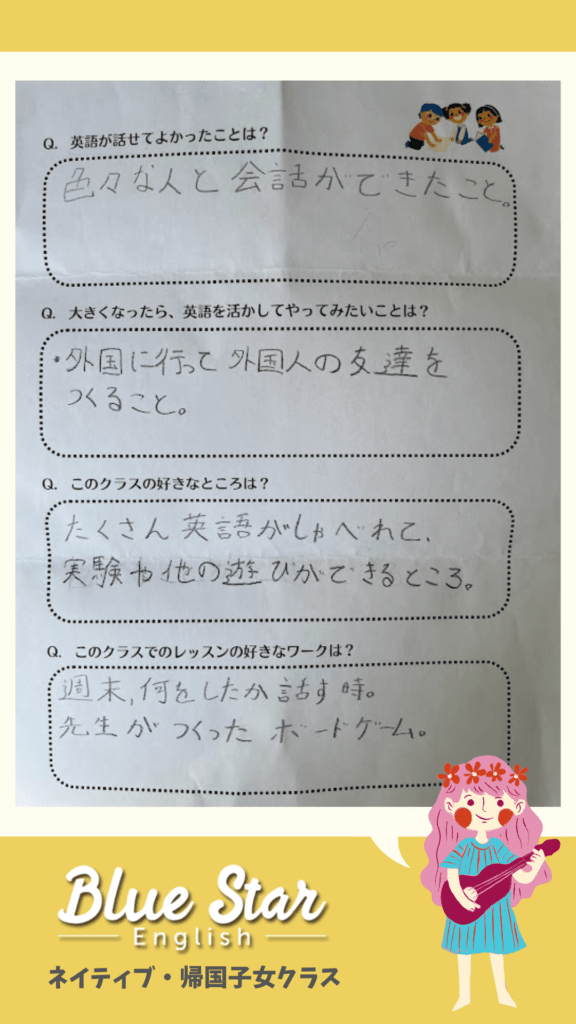 Q. 英語が話せてよかったことは？
色々な人と会話ができたこと。
Q. 大きくなったら、英語を活かしてやってみたいことは？
・外国に行って外国人の友達を
つくること。
Q. このクラスの好きなところは？
たくさん英語がしゃべれて、
実験や他の遊びができるところ。
Q. このクラスでのレッスンの好きなワークは？
週末,何をしたか話す時。
先生がつくったボードゲーム。
Blue Star
English
ネイティブ・帰国子女クラス